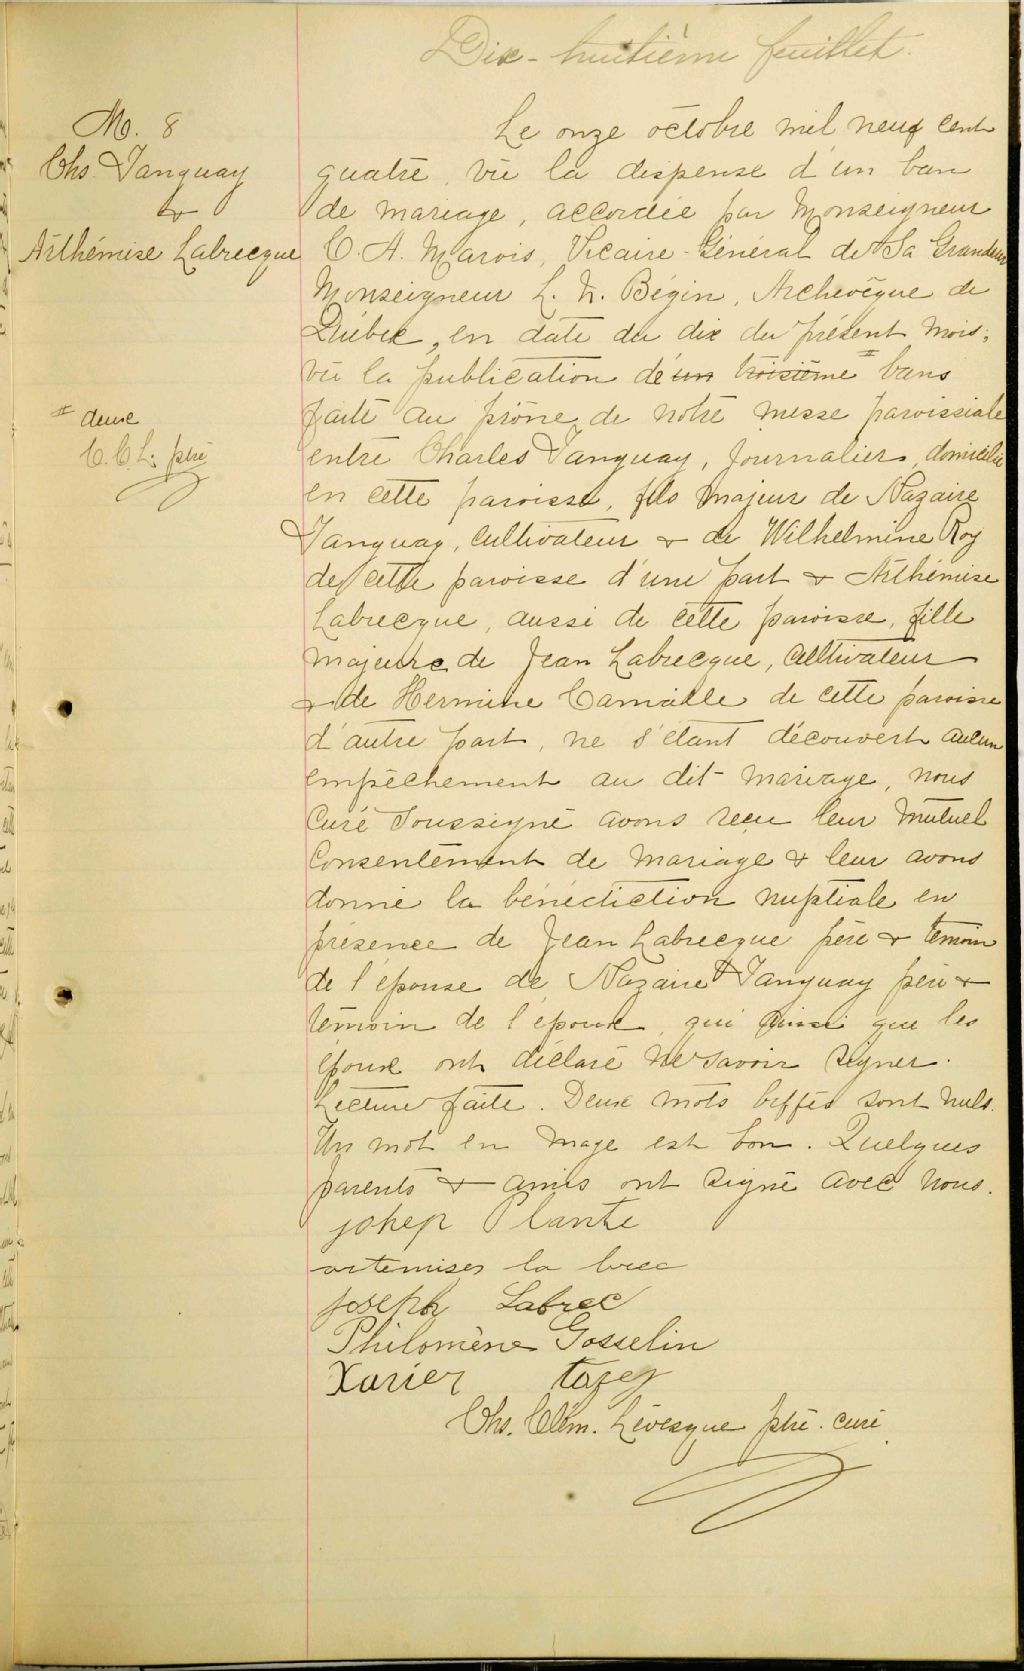 Dix-huitième feuillet.
M. 8
Chs Tanguay
&
Arthémise Labrecque
Le onze octobre mil neuf cent
quatre, vu la dispense d'un ban
de mariage, accordée par Monseigneur
C. A. Marois, Vicaire-Général de Sa Grandeur
Monseigneur L. N. Bégin, Archevêque de
Québec, en date du dix du présent mois;
vu la publication de un troisième # bans
# deux
C. C. L. ptre
faite au prône de notre messe paroissiale
entre Charles Tanguay, journalier, domicilié
en cette paroisse, fils majeur de Nazaire
Tanguay, cultivateur & de Wilhelmine Roy
de cette paroisse d'une part & Arthémise
Labrecque, aussi de cette paroisse, fille
majeure de Jean Labrecque, cultivateur
& de Hermine Camille de cette paroisse
d'autre part, ne s'étant découvert aucun
empêchement au dit mariage, nous
Curé soussigné avons reçu leur mutuel
Consentement de mariage & leur avons
donné la bénédiction nuptiale en
présence de Jean Labrecque père & témoin
de l'épouse de Nazaire Tanguay père &
témoin de l'époux, qui ainsi que les
époux ont déclaré ne savoir signer.
Lecture faite. Deux mots biffés sont nuls.
Un mot en mage est bon. Quelques
parents & amis ont signé avec nous.
johep Plante
artemises la brec
joseph Labrec
Philomène Gosselin
Xavier
Chs. Clém. Lévesque ptre. curé